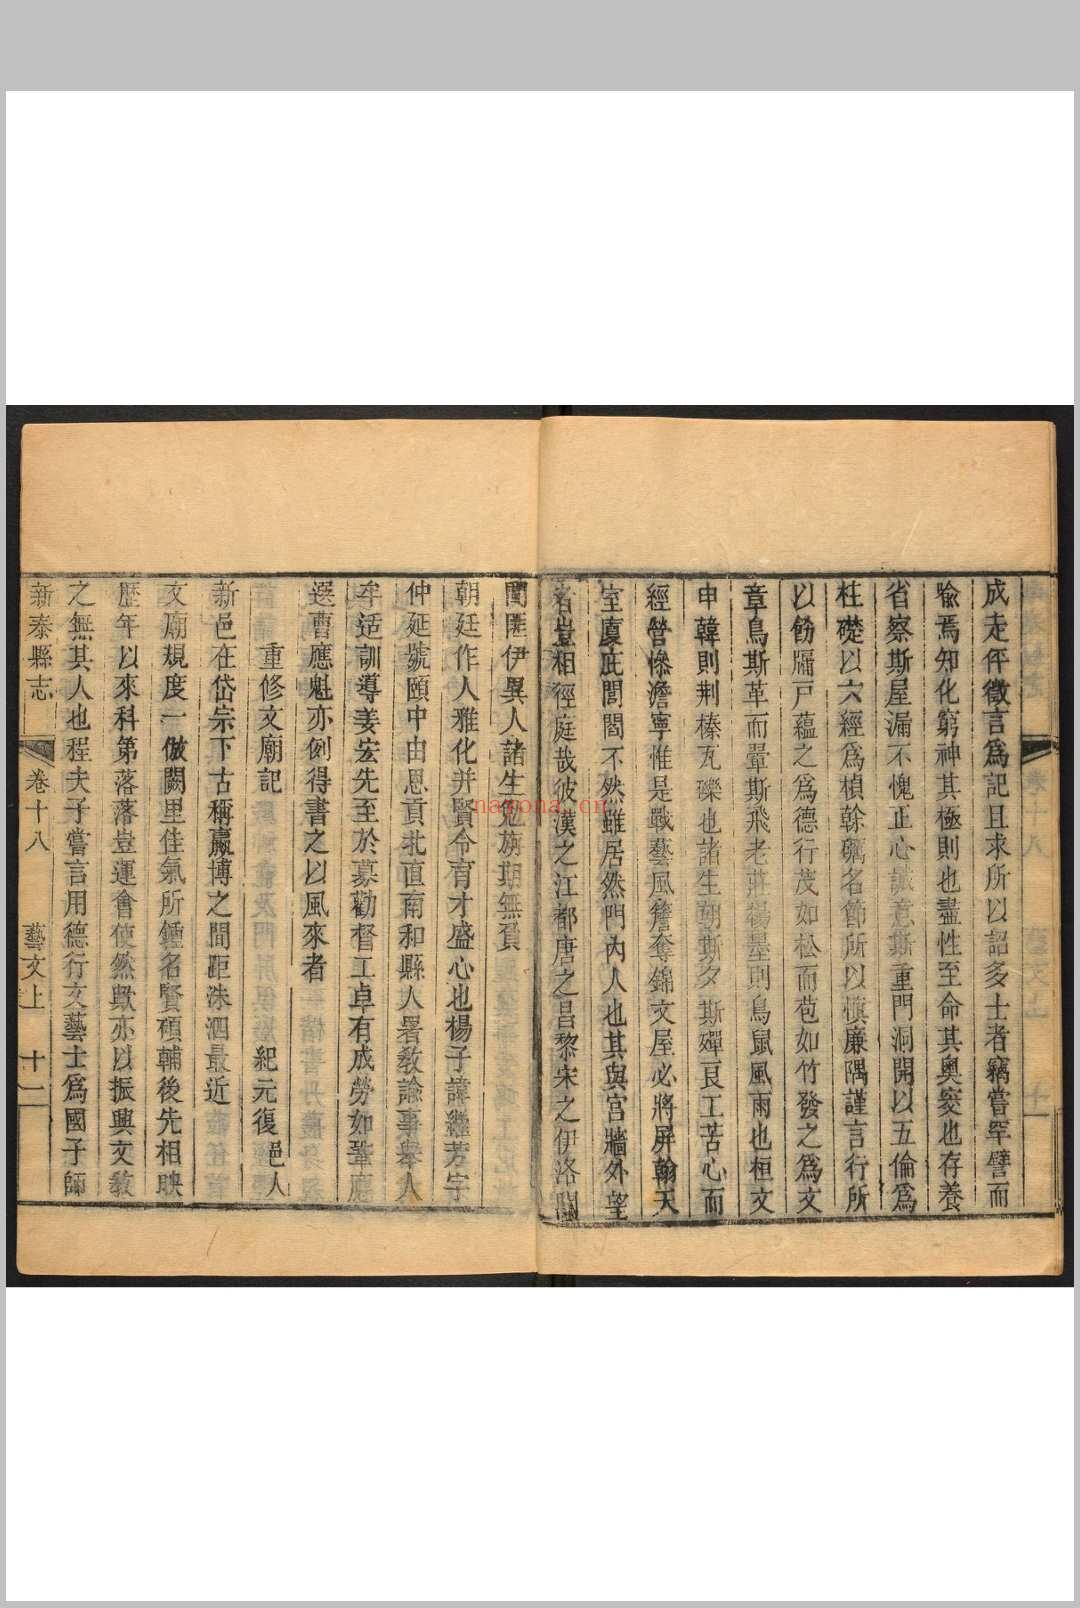 成走伻徵言爲記且求所以詔多士者竊嘗罕譬而
喻焉知化窮神其極則也盡性至命其奧窔也存養
省察斯屋漏不愧正心誠意斯重門洞開以五倫爲
柱礎以六經爲楨榦礪名節所以慎廉隅謹言行所
以飭牖戸蘊之爲德行茂如松而苞如竹發之爲文
章鳥斯革而翬斯飛老莊楊墨則鳥鼠風雨也桓文
申韓則荆榛瓦礫也諸生朝斯夕斯殫良工苦心而
經營慘澹寧惟是戰藝風簷奪錦文屋必將屏翰天
室廈庇閭閻不然雖居然門內人也其與宮牆外望
者豈相徑庭哉彼漢之江都唐之昌黎宋之伊洛關
閩匪伊異人諸生勉旃期無負
朝廷作人雅化并賢令育才盛心也楊子諱繼芳字
仲延號頤中由恩貢北直南和縣人署教諭事舉人
牟适訓導姜宏先至於募勸督工卓有成勞如鞏應
選曹應魁亦例得書之以風來者
重修文廟記 紀元復 邑人
新邑在岱宗下古稱嬴博之間距洙泗最近
文廟規度一倣闕里佳氣所鍾名賢碩輔後先相映
歷年以來科第落落豈運會使然歟亦以振興文教
之無其人也程夫子嘗言用德行文藝士爲國子師
新泰縣志 卷十八 藝文上 十一
nayona.cn